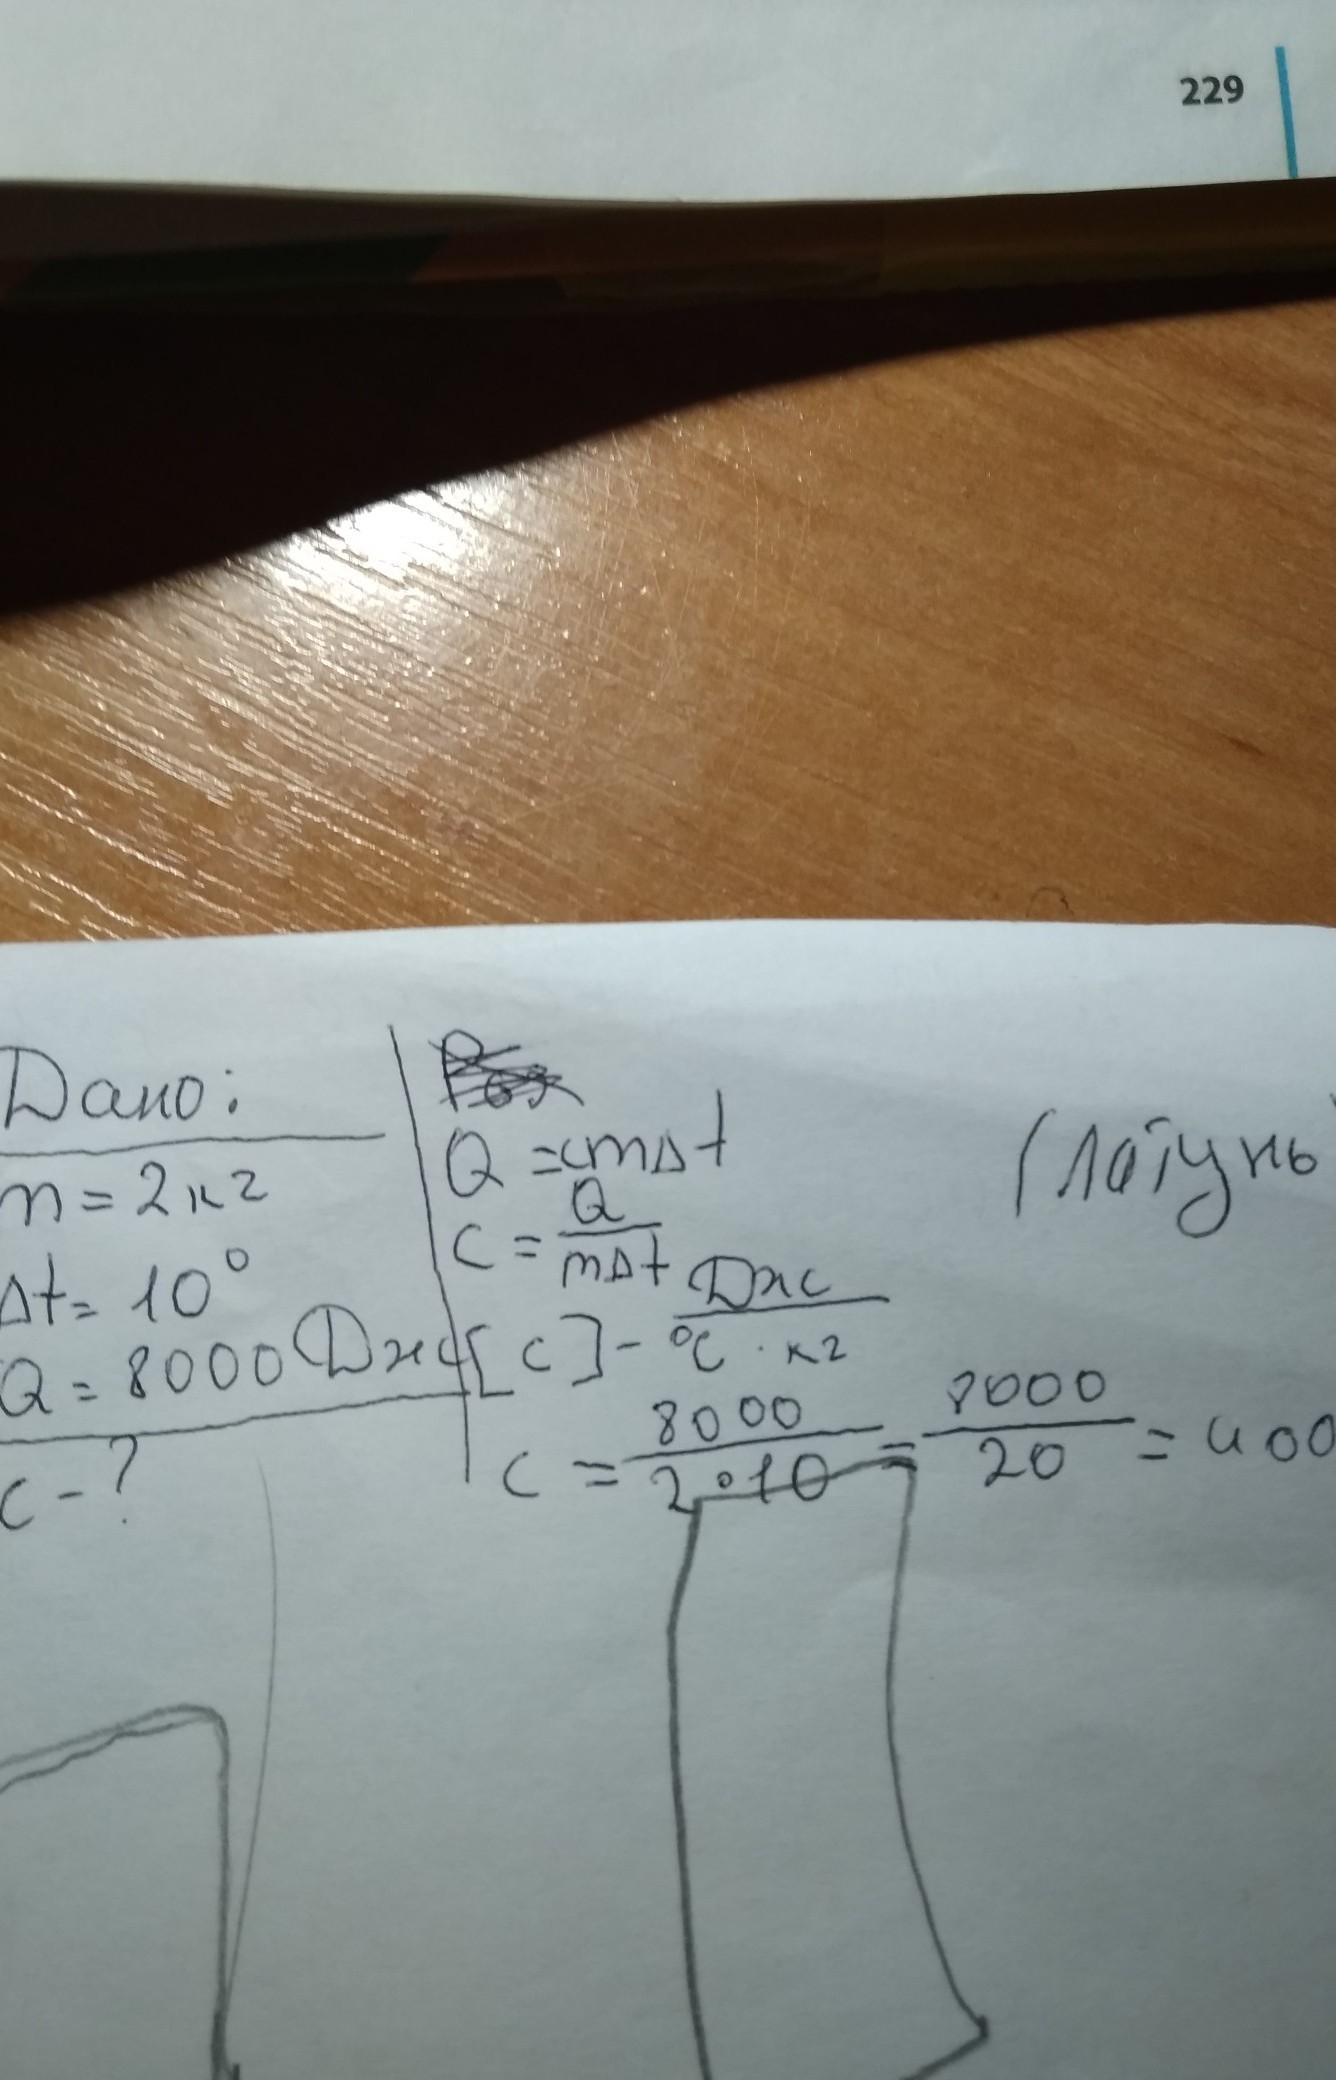 229
Дано:
m = 2 кг
Δt = 10°
Q = 8000 Дж
c - ?
Q = cmΔt
c = Q / mΔt
[c] - Дж / °C · кг
c = 8000 / 2·10 = 8000 / 20 = 400
(латунь